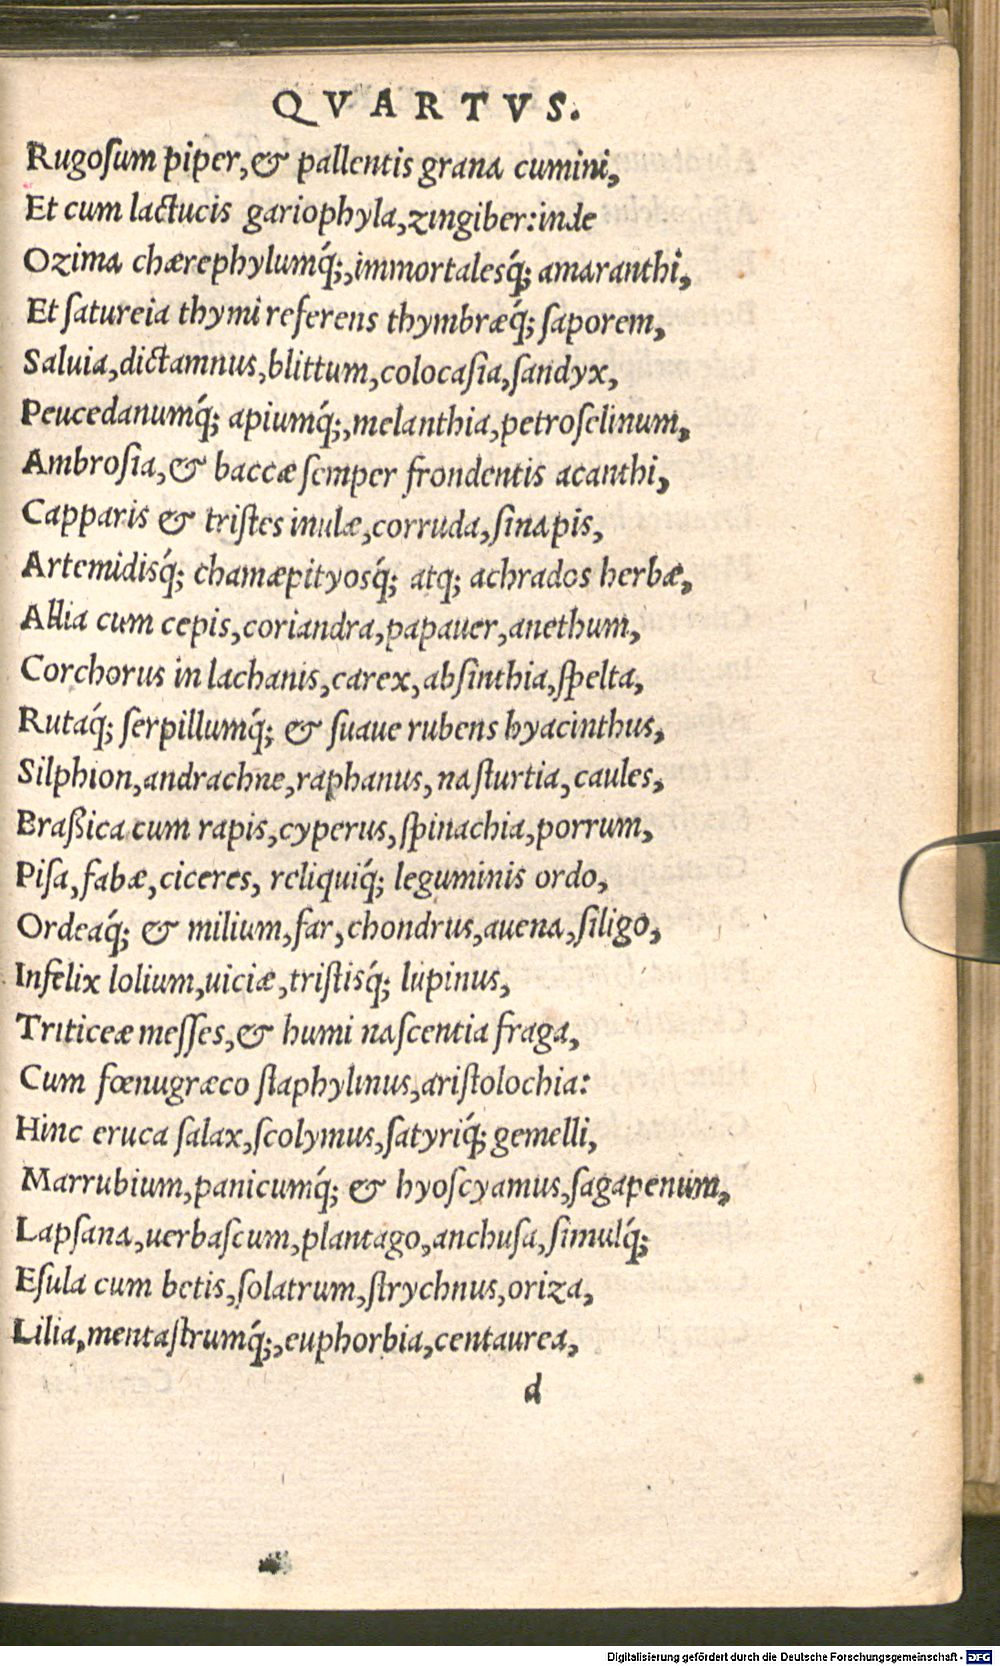 QVARTVS.
Rugoſum piper,& pallentis grana cumini,
Et cum lactucis gariophyla,zingiber:inde
Ozima chærephylumq́;,immortalesq́; amaranthi,
Et ſatureia thymi referens thymbræq́; ſaporem,
Saluia,dictamnus,blittum,colocaſia,ſandyx,
Peucedanumq́; apiumq́;,melanthia,petroſelinum,
Ambroſia,& baccæ ſemper frondentis acanthi,
Capparis & triſtes inulæ,corruda,ſinapis,
Artemidisq́; chamæpityosq́; atq; achrados herbæ,
Allia cum cepis,coriandra,papauer,anethum,
Corchorus in lachanis,carex,abſinthia,ſpelta,
Rutaq́; ſerpillumq́; & ſuaue rubens hyacinthus,
Silphion,andrachne,raphanus,naſturtia,caules,
Braßica cum rapis,cyperus,ſpinachia,porrum,
Piſa,fabæ,ciceres, reliquiq́; leguminis ordo,
Ordeaq́; & milium,far,chondrus,auena,ſiligo,
Infelix lolium,uiciæ,triſtisq́; lupinus,
Triticeæ meſſes,& humi naſcentia fraga,
Cum fœnugræco ſtaphylinus,ariſtolochia:
Hinc eruca ſalax,ſcolymus,ſatyriq́; gemelli,
Marrubium,panicumq́; & hyoſcyamus,ſagapenum,
Lapſana,uerbaſcum,plantago,anchuſa,ſimulq́;
Eſula cum betis,ſolatrum,ſtrychnus,oriza,
Lilia,mentaſtrumq́;,euphorbia,centaurea,
d
Digitalisierung gefördert durch die Deutsche Forschungsgemeinschaft - DFG